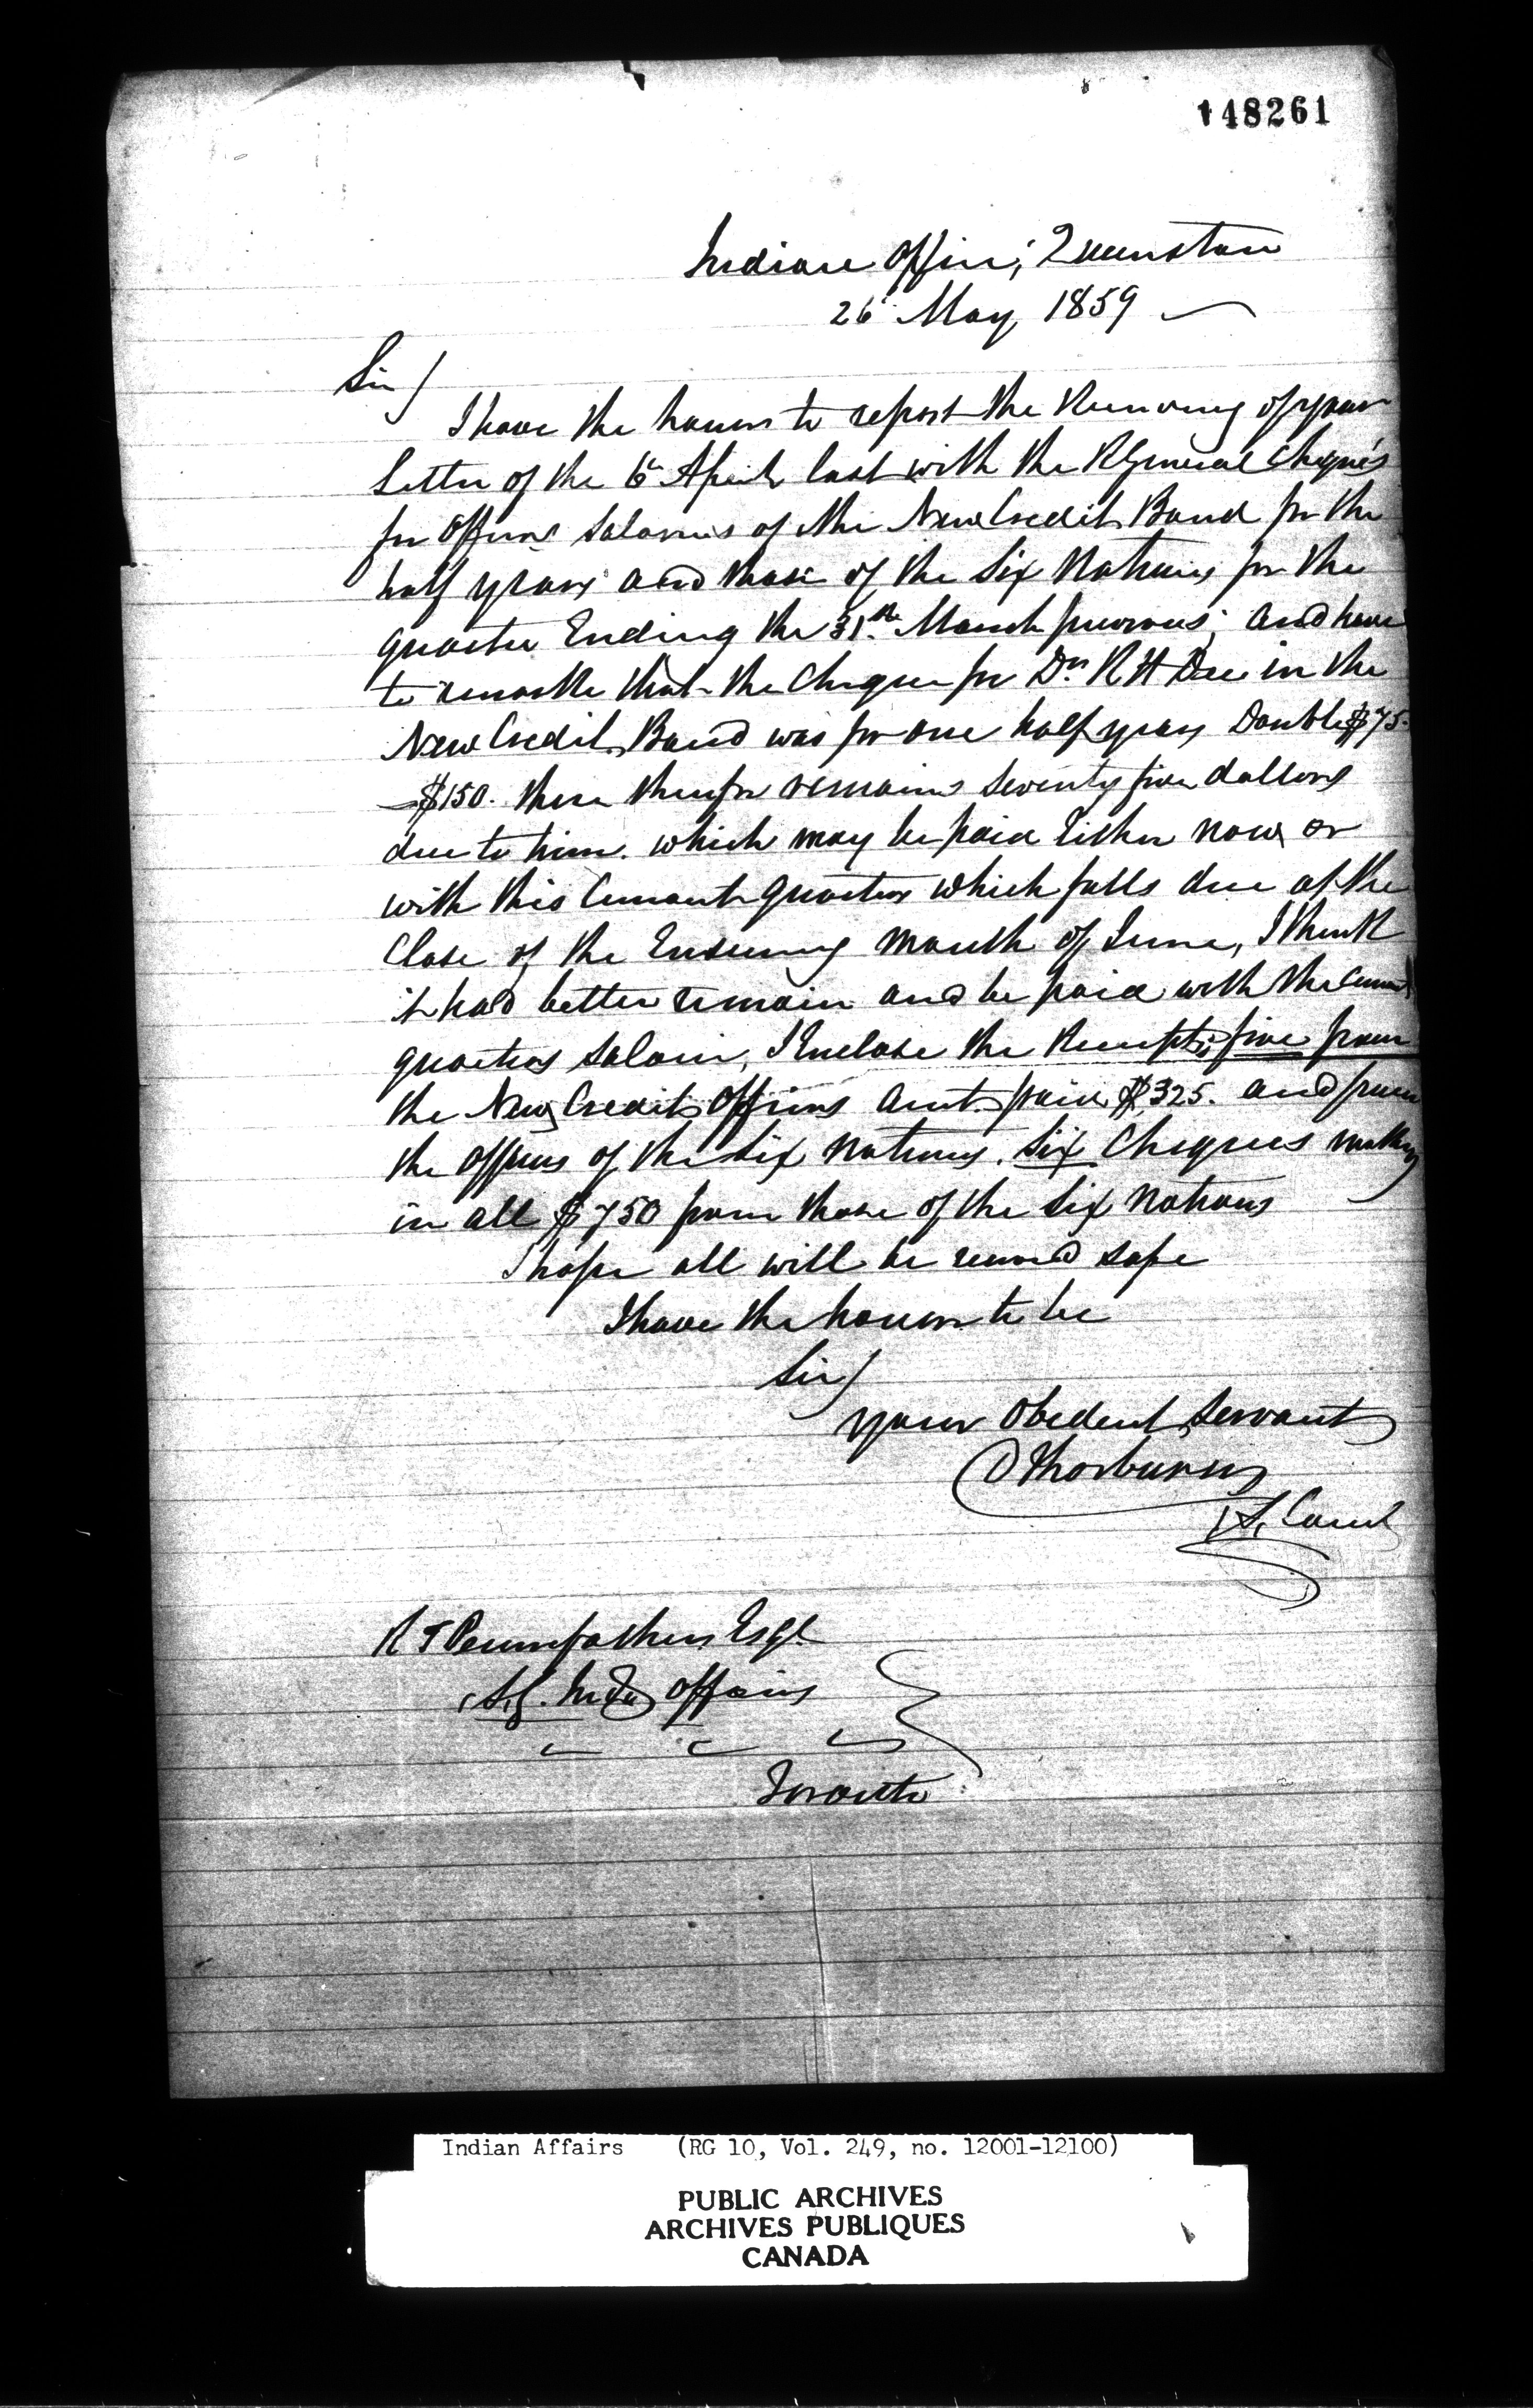 148261
Indian Office, Queenston
26 May, 1859
Sir/
I have the honor to report the Receiving of your
Letter of the 6th April last with the R General Cheques
for Officers Salaries of the New Credit Band for the
half year and those of the Six Nations, for the
quarter Ending the 31.st March previous; and have
to remark that the Cheque for Dr. R H Dee in the
New Credit Band was for one half year Double $75.
—$150. there therefor remains seventy five dollars
due to him. which may be paid Either now or
with this Current quarter which falls due at the
Close of the Ensuing month of June, I think
it had better remain and be paid with the Current
quarters Salarie, I Enclose the Receipts; five from
the New Credit Officers Amt. paid $325. and from
the officers of the Six Nations. Six Cheques making
in all $750 from those of the Six Nations
I hope all will be received safe
I have the honor to be
Sir/
your Obedent Servant
D Thorburn
Comr
R T Pennefather Esqr.
S.G. Ind Affairs
Toronto
Indian Affairs (RG 10, Vol. 249, no. 12001-12100)
PUBLIC ARCHIVES
ARCHIVES PUBLIQUES
CANADA